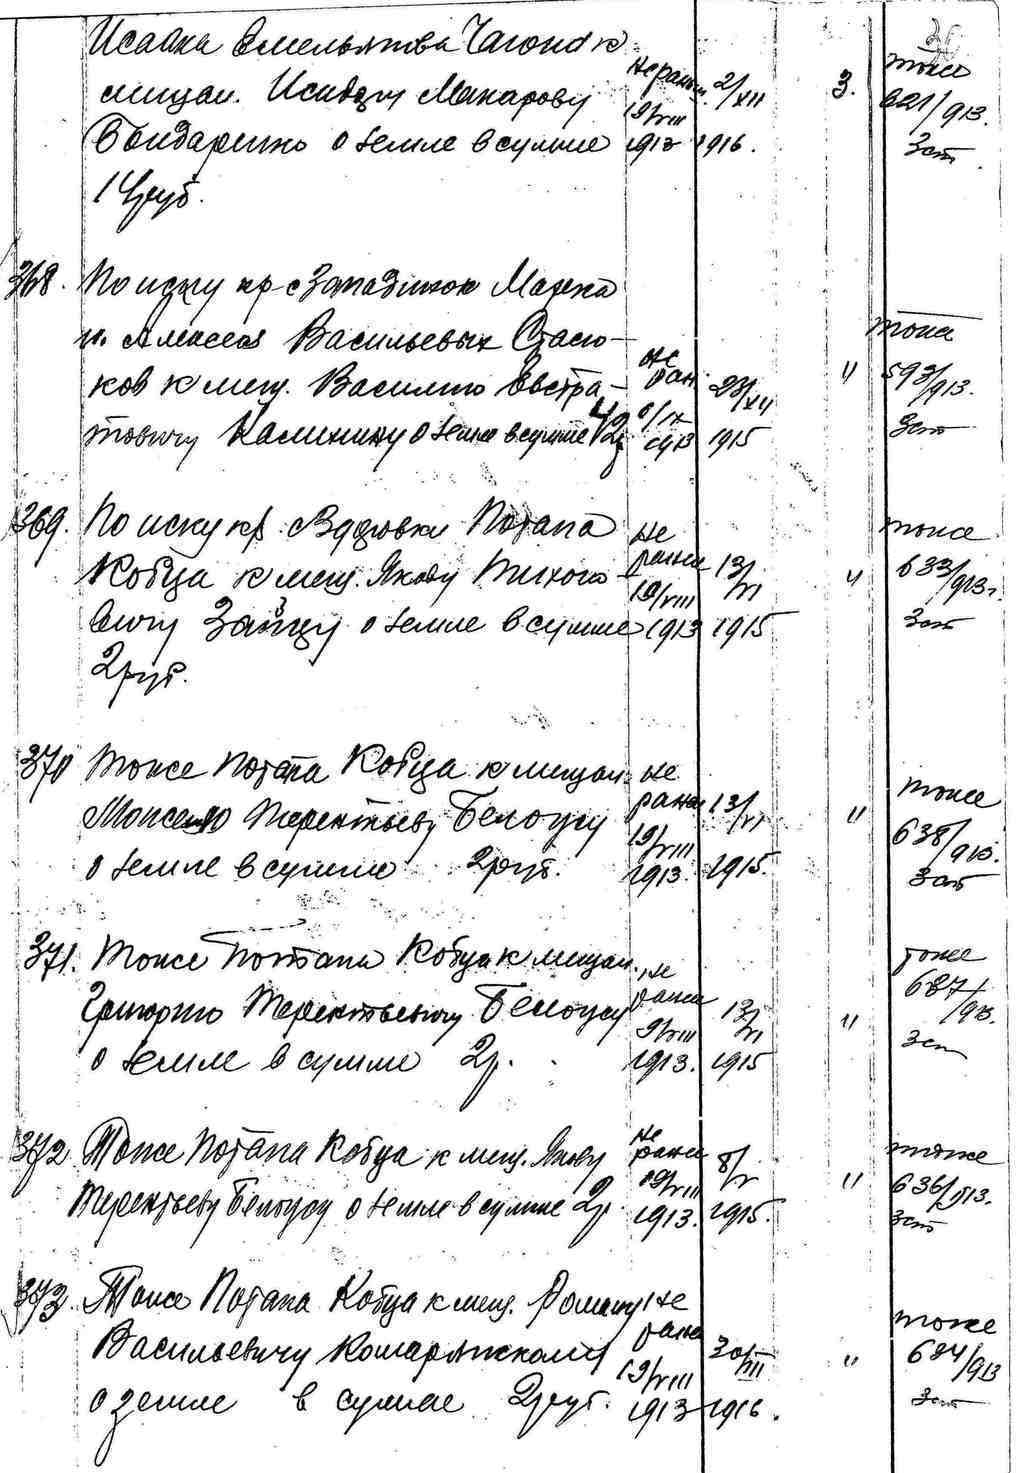 26
Исаака Емельянова к
мещан. Исидору Макарову не ранее 2/XII 3. тоже
Бондаренко о земле в сумме 19/VIII 1913 1916. 621/913.
14 руб. 3 ст
368. По иску кр. с Западинок Марка
и Алексея Васильевых Стасю- тоже
ков к мещ. Василию Евстра- не ран. 23/XII " 593/913.
товичу Калинину о земле в сумме 6/IX 1913 1915 3 ст
369. По иску кр. с Вдовки Потапа не тоже
Кобца к мещ. Якову Тихоно- ранее 13/VI " 633/913 г.
вичу Зайцу о земле в сумме 19/VIII 1913 1915 3 ст
2 руб.
370 Тоже Потапа Кобца к мещан. не тоже
Моисею Терентьеву Белоусу ранее 13/VI " 638/913.
о земле в сумме 2 руб. 19/VIII 1913. 1915. 3 ст
371. Тоже Потапа Кобца к мещан. не тоже
Григорию Терентьевичу Белоусу ранее 13/VI " 637/913.
о земле в сумме 2 р. 19/VIII 1913. 1915 3 ст
372 Тоже Потапа Кобца к мещ. Якову не ранее 8/V " тоже
Терентьеву Белоусу о земле в сумме 2 р. 19/VIII 1913. 1915. 636/913. 3 ст
373. Тоже Потапа Кобца к мещ. Роману не тоже
Васильевичу ранее 30/ " 634/913
о земле в сумме 2 руб. 19/VIII 1913 1916. 3 ст